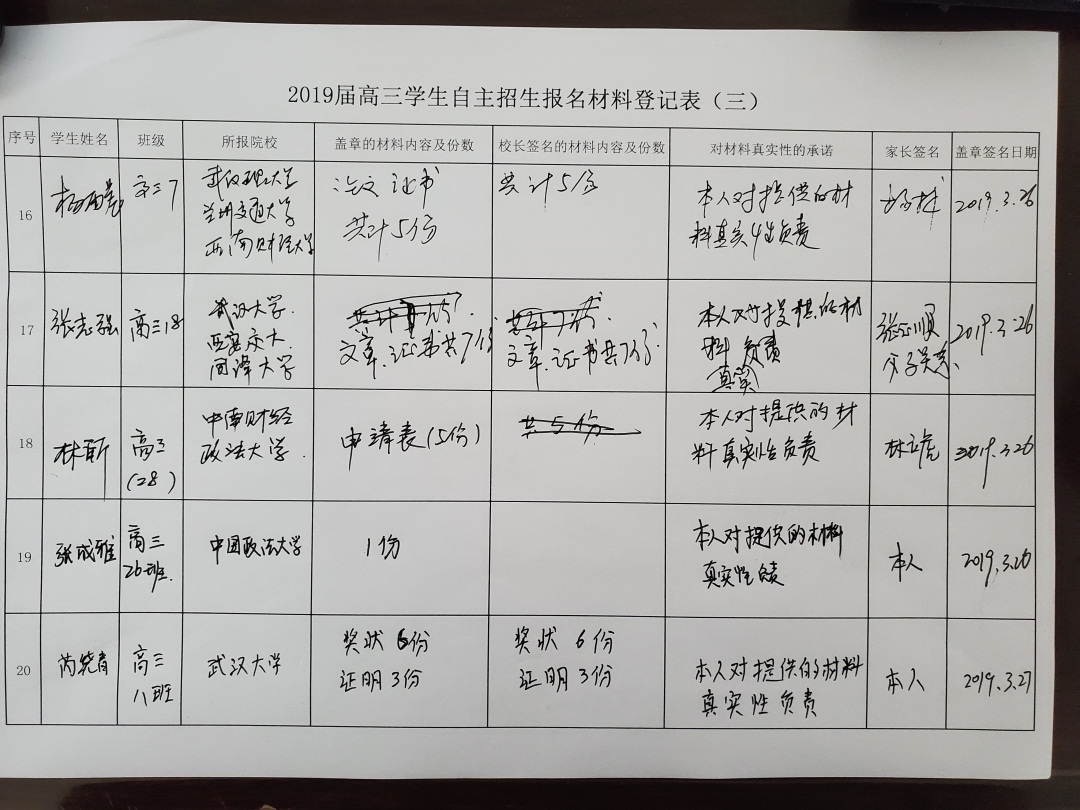 2019届高三学生自主招生报名材料登记表（三）
序号 学生姓名 班级 所报院校 盖章的材料内容及份数 校长签名的材料内容及份数 对材料真实性的承诺 家长签名 盖章签名日期
16 高三7 武汉理工大学 论文 证书 共计5份 本人对提供的材 2019.3.26
兰州交通大学 共计5份 料真实性负责
西南财经大学
17 张志强 高三18 武汉大学. 共计7份. 共计7份. 本人对提供的材 张正顺 2019.3.26
西安交大. 文章.证书共7份 文章.证书共7份. 料 负责 父子关系.
同济大学 真实
18 林昕 高三 中南财经 申请表(5份) 共5份 本人对提供的材 林立虎 2019.3.26
(28) 政法大学. 料真实性负责
19 张成雅 高三 中国政法大学 1份 本人对提供的材料 本人 2019.3.26
26班. 真实性负责
20 高三 武汉大学 奖状 6份 奖状 6份 本人对提供的材料 本人 2019.3.27
八班 证明 3份 证明 3份 真实性负责